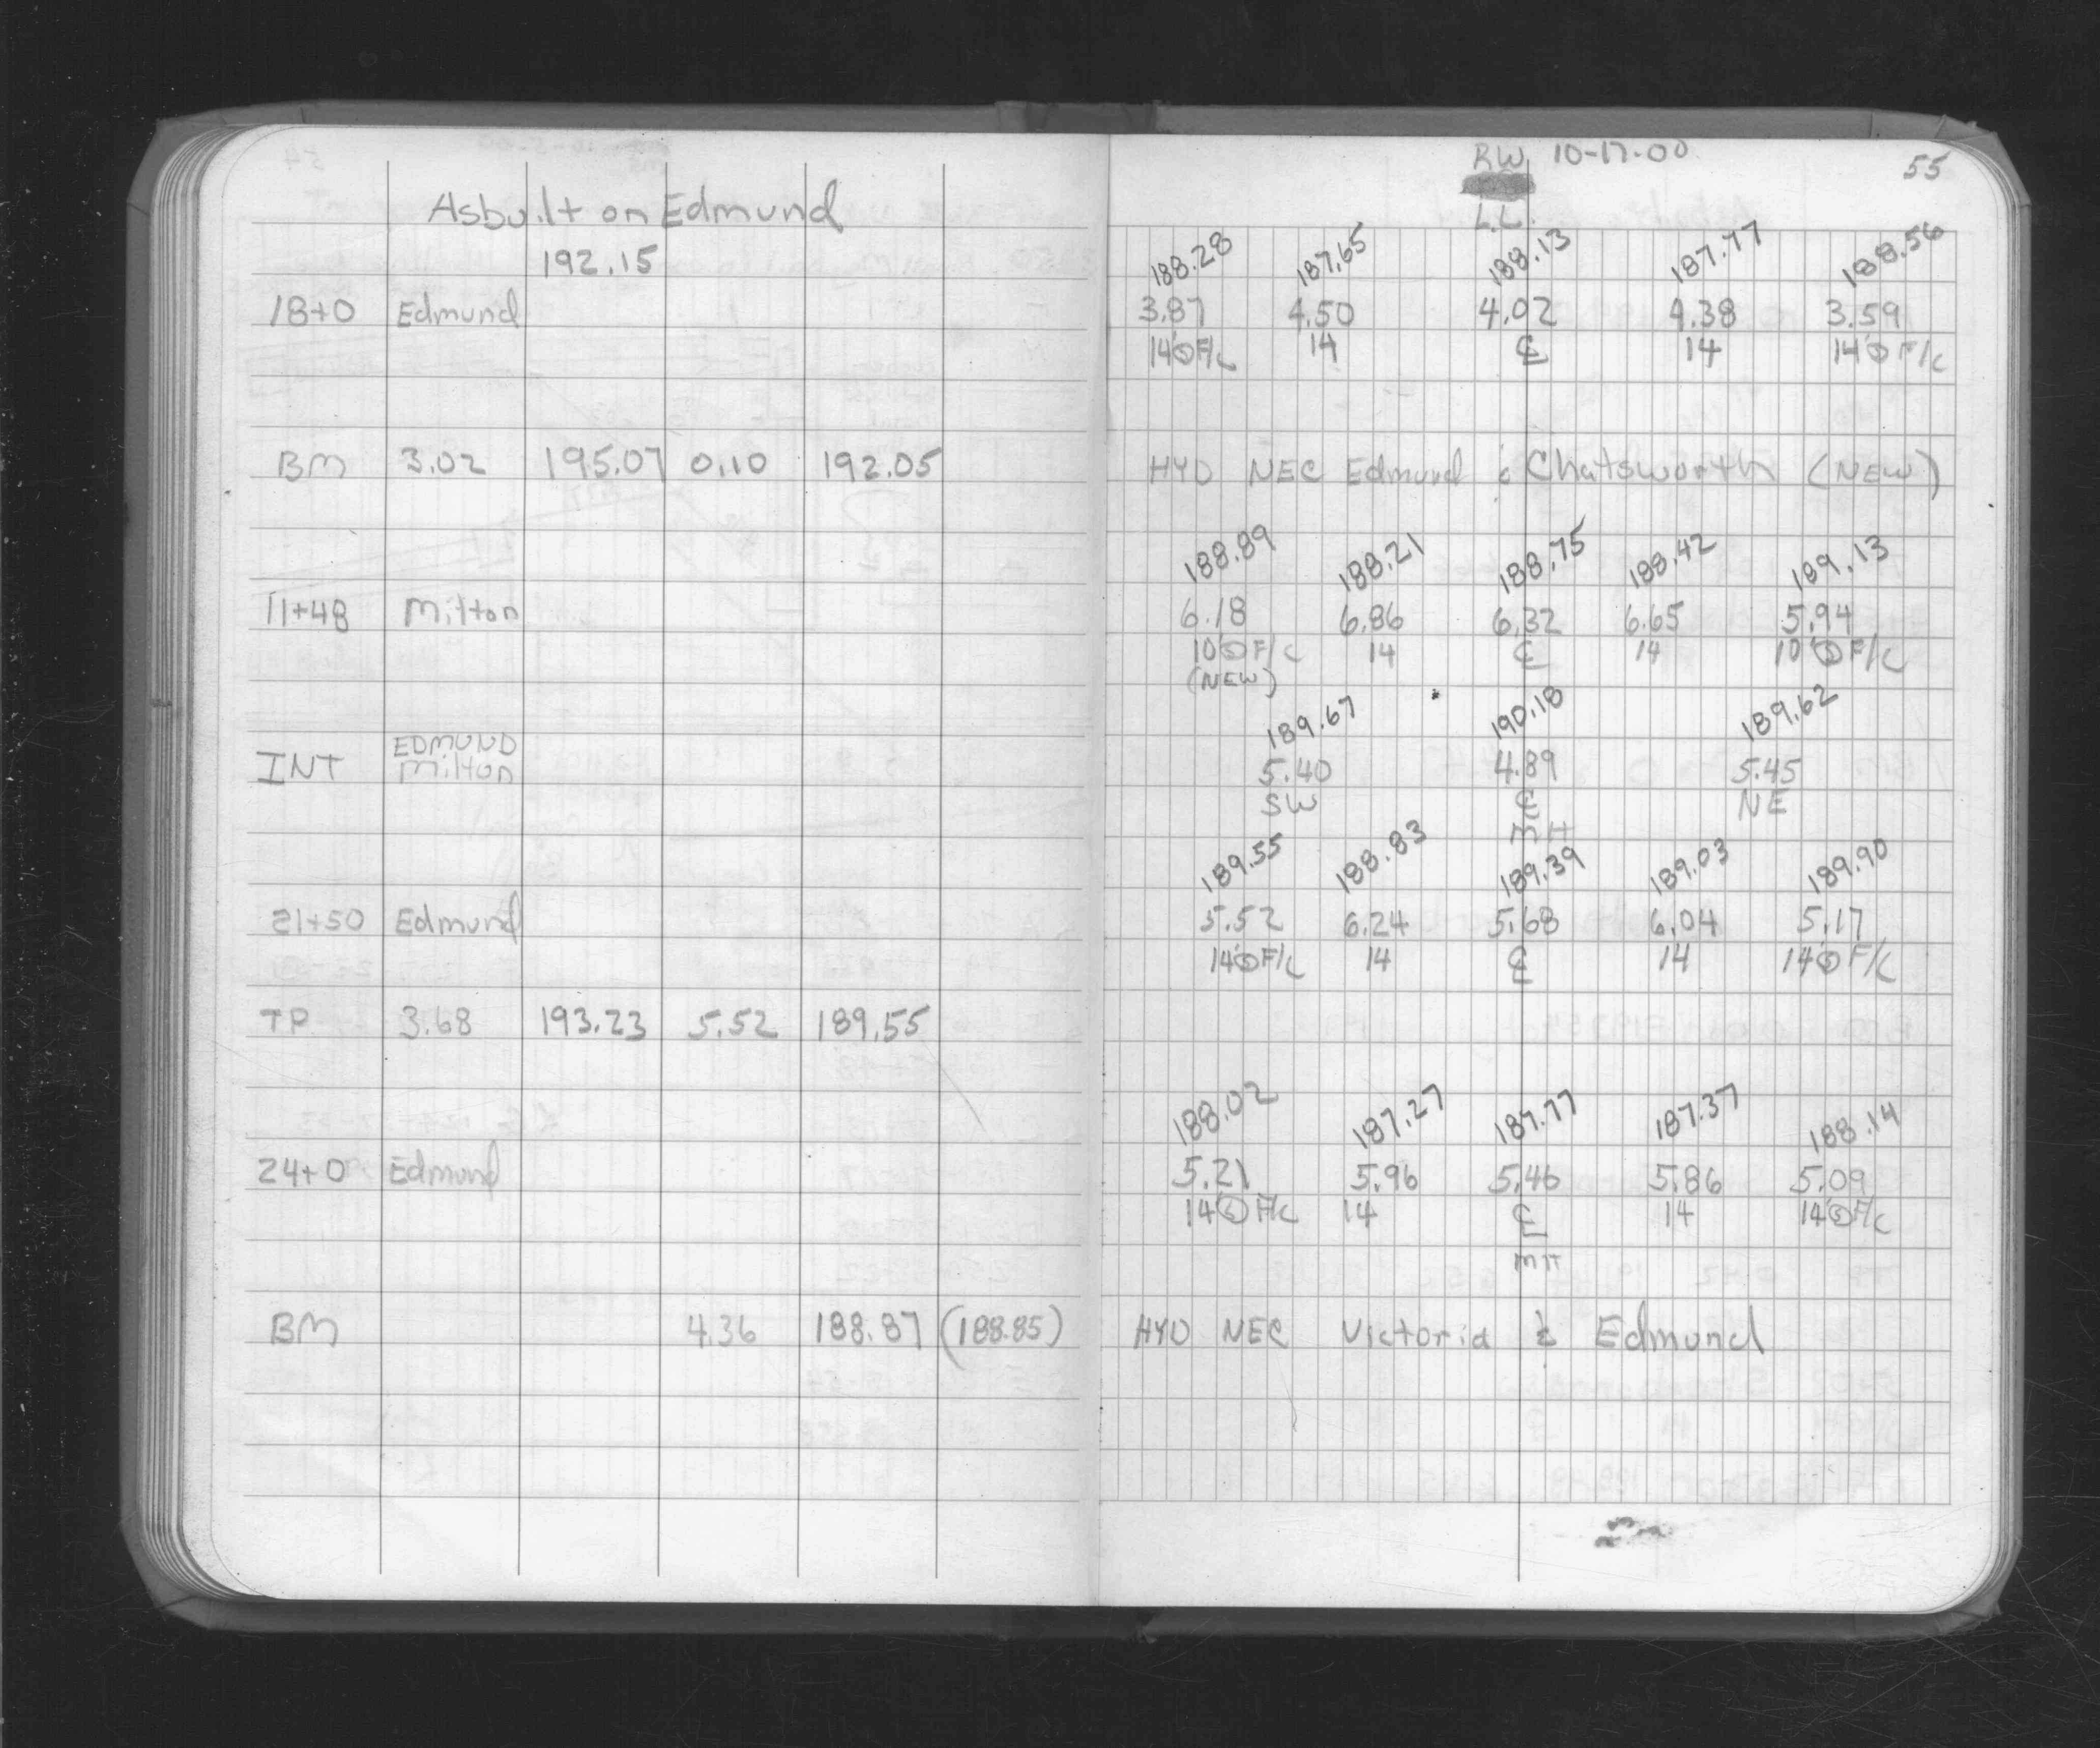 Asbuilt on Edmund
192.15
18+0 Edmund
BM 3.02 195.07 0.10 192.05
11+48 Milton
INT EDMUND
Milton
21+50 Edmund
TP 3.68 193.23 5.52 189.55
24+0 Edmund
BM 4.36 188.87 (188.85)
RW 10-17-00 55
L.L.
188.28 187.65 188.13 187.77 188.56
3.87 4.50 4.02 4.38 3.59
14' F/C 14 ℄ 14 14' F/C
HYD NEC Edmund & Chatsworth (NEW)
188.89 188.21 188.75 188.42 189.13
6.18 6.86 6.32 6.65 5.94
10' F/C 14 ℄ 14 10' F/C
(NEW)
189.67 190.18 189.62
5.40 4.89 5.45
SW ℄ NE
MH
189.55 188.83 189.39 189.03 189.90
5.52 6.24 5.68 6.04 5.17
14' F/C 14 ℄ 14 14' F/C
188.02 187.27 187.77 187.37 188.14
5.21 5.96 5.46 5.86 5.09
14' F/C 14 ℄ 14 14' F/C
MH
HYD NEC Victoria & Edmund